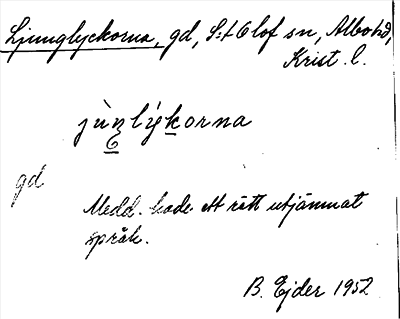 Ljunglyckorna, gd, S:t Olof sn, Albo hd,
Krist. l.
jùn̲lýk̲orna
gd
Medd. hade ett rätt utjämnat
språk.
B. Ejder 1952